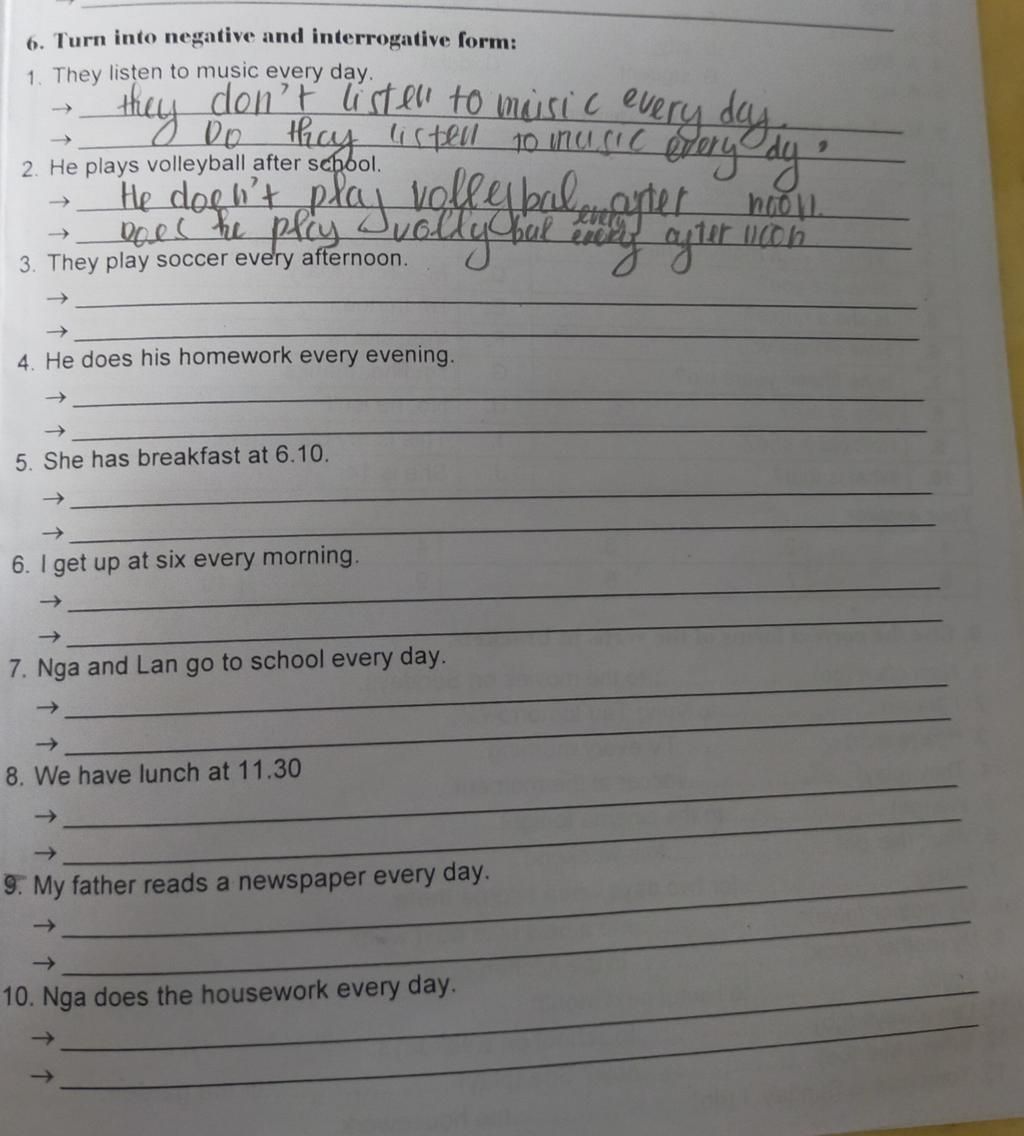 6. Turn into negative and interrogative form:
1. They listen to music every day.
→ they don't listen to music every day.
→ Do they listen to music every dy ?
2. He plays volleyball after school.
→ He doen't play volleybal after noon.
→ Does he play vollybal every after noon
3. They play soccer every afternoon.
→
→
4. He does his homework every evening.
→
→
5. She has breakfast at 6.10.
→
→
6. I get up at six every morning.
→
→
7. Nga and Lan go to school every day.
→
→
8. We have lunch at 11.30
→
→
9. My father reads a newspaper every day.
→
→
10. Nga does the housework every day.
→
→